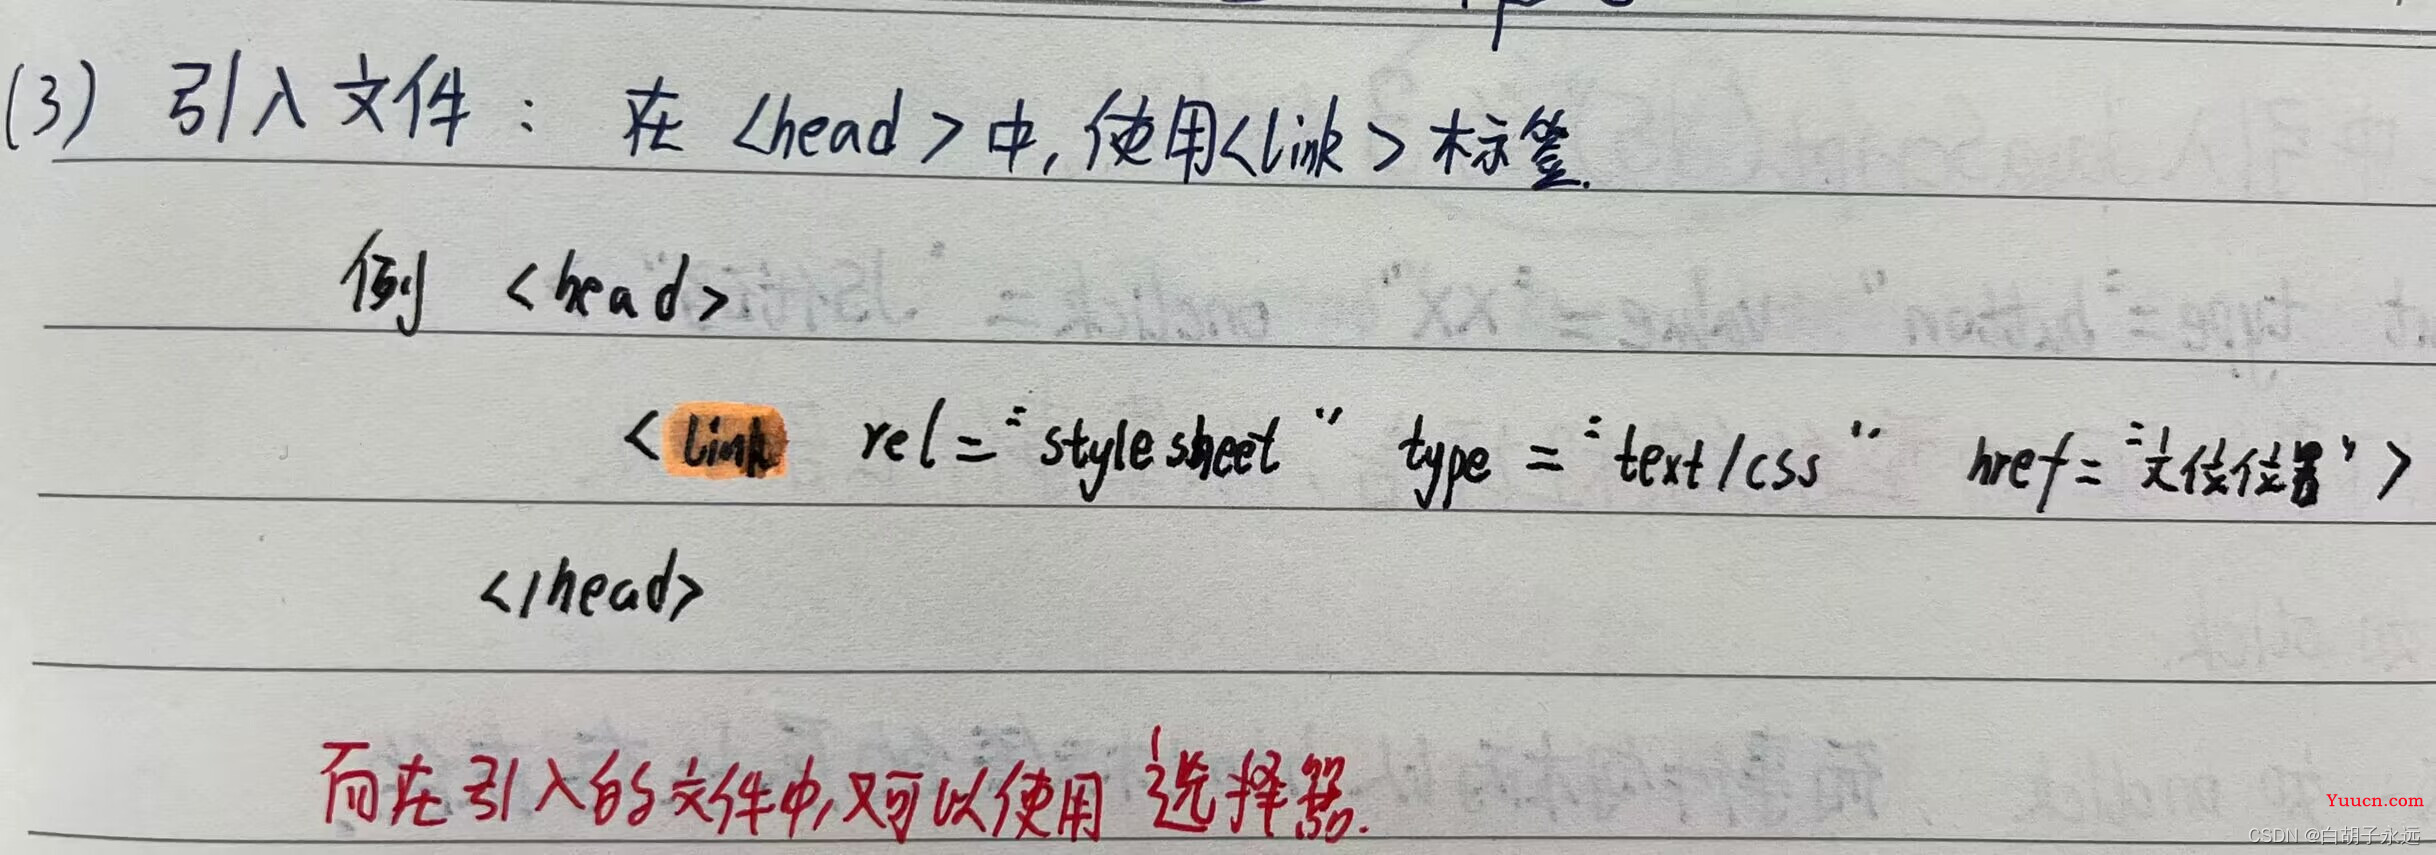 (3) 引入文件: 在 <head> 中, 使用<link> 标签.
例 <head>
<link rel="stylesheet" type="text/css" href="文位位置">
</head>
而在引入的文件中,又可以使用 选择器.
Yuucn.com
CSDN @白胡子永远